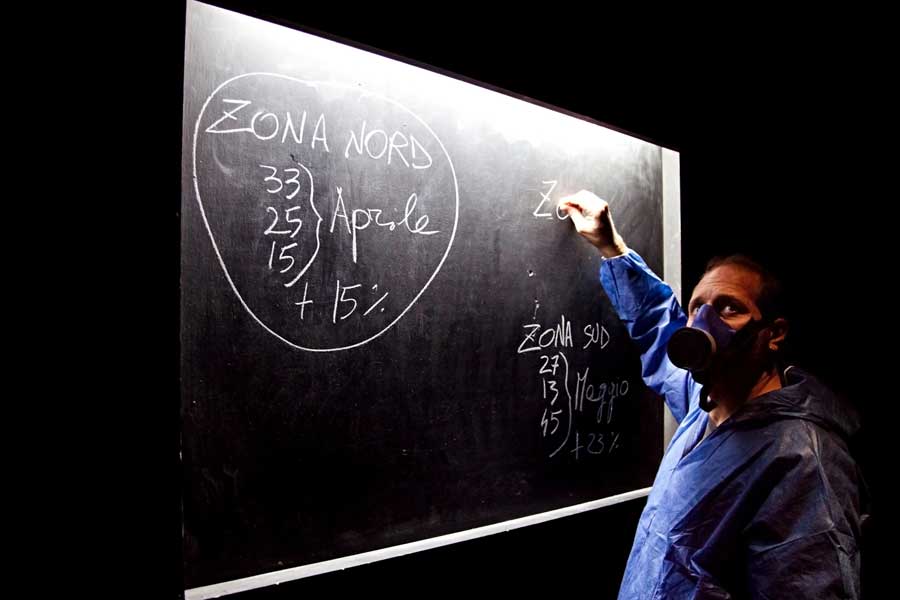 ZONA NORD
33
25
15
Aprile
+ 15%
Zo
ZONA SUD
27
13
45
Maggio
+ 23%